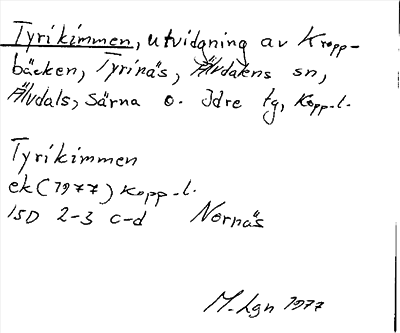 Tyrikimmen, utvidgning av Kropp-
bäcken, Tyrinäs, Älvdalens sn,
Älvdals, Särna o. Idre tg, Kopp-l.
Tyrikimmen
ek (1977) Kopp-l.
15D 2-3 c-d Nornäs
M. Lgn 1977